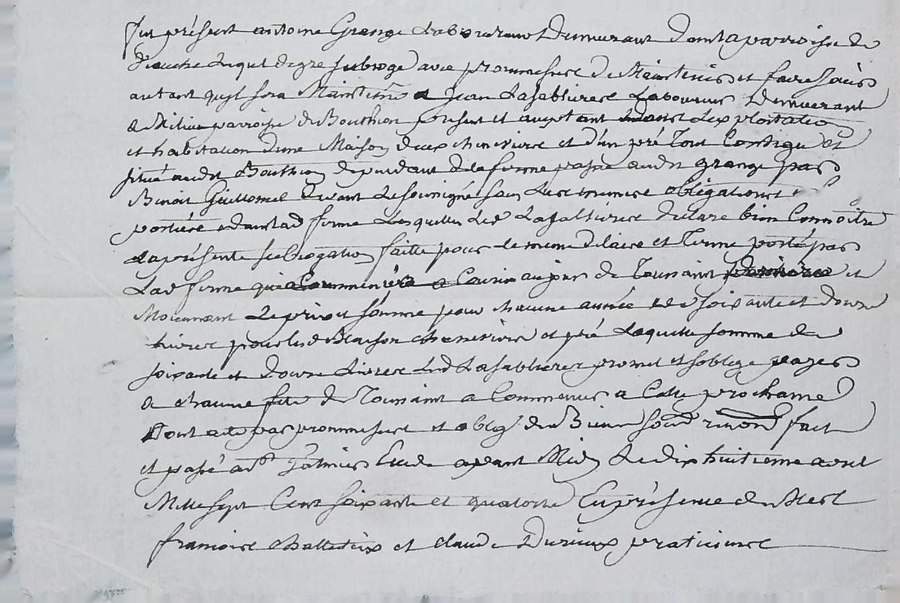 fut présent antoine Grange Laboureur Demeurant dans la parroisse de
Lequel degre subroge avec prommesse de Maintenir et faire Jouir
autant quil sera Maintenu a Jean Lasabliere Laboureur Demeurant
a parroisse de Bouthéon présent et acceptant Lexploitation
et habitation d'une Maison deux cheneviere et d'un pré Tout Contigu Et
situé audit Bouthéon dépendant de la ferme passée audit grange par
Benoit Guittonel devant Le soussigné sous Les mêmes obligations
portées audit ferme Lesquelles Led Lasabliere declare bien Connoitre
La présente subrogation faitte pour le meme delaix et Terme porté par
Lad ferme qui a Commencé a Courir au jour de Toussaint et
Moiennant Le prix et somme pour chacune année de soixante et douze
livres pour lesd Maison cheneviere et pré Laquelle somme de
soixante et douze Livres Led Lasabliere promet et soblige payer
a chacune fete de Toussaint a Commencer a Celle prochaine
Dont acte par prommesse et oblig. de Biens soum. renon. fait
et passé a St Galmier Etude avant Midy Le dix huitieme avril
Mille sept Cent soixante et quatorze En présence de Mes
francois et claude Durieux praticiens